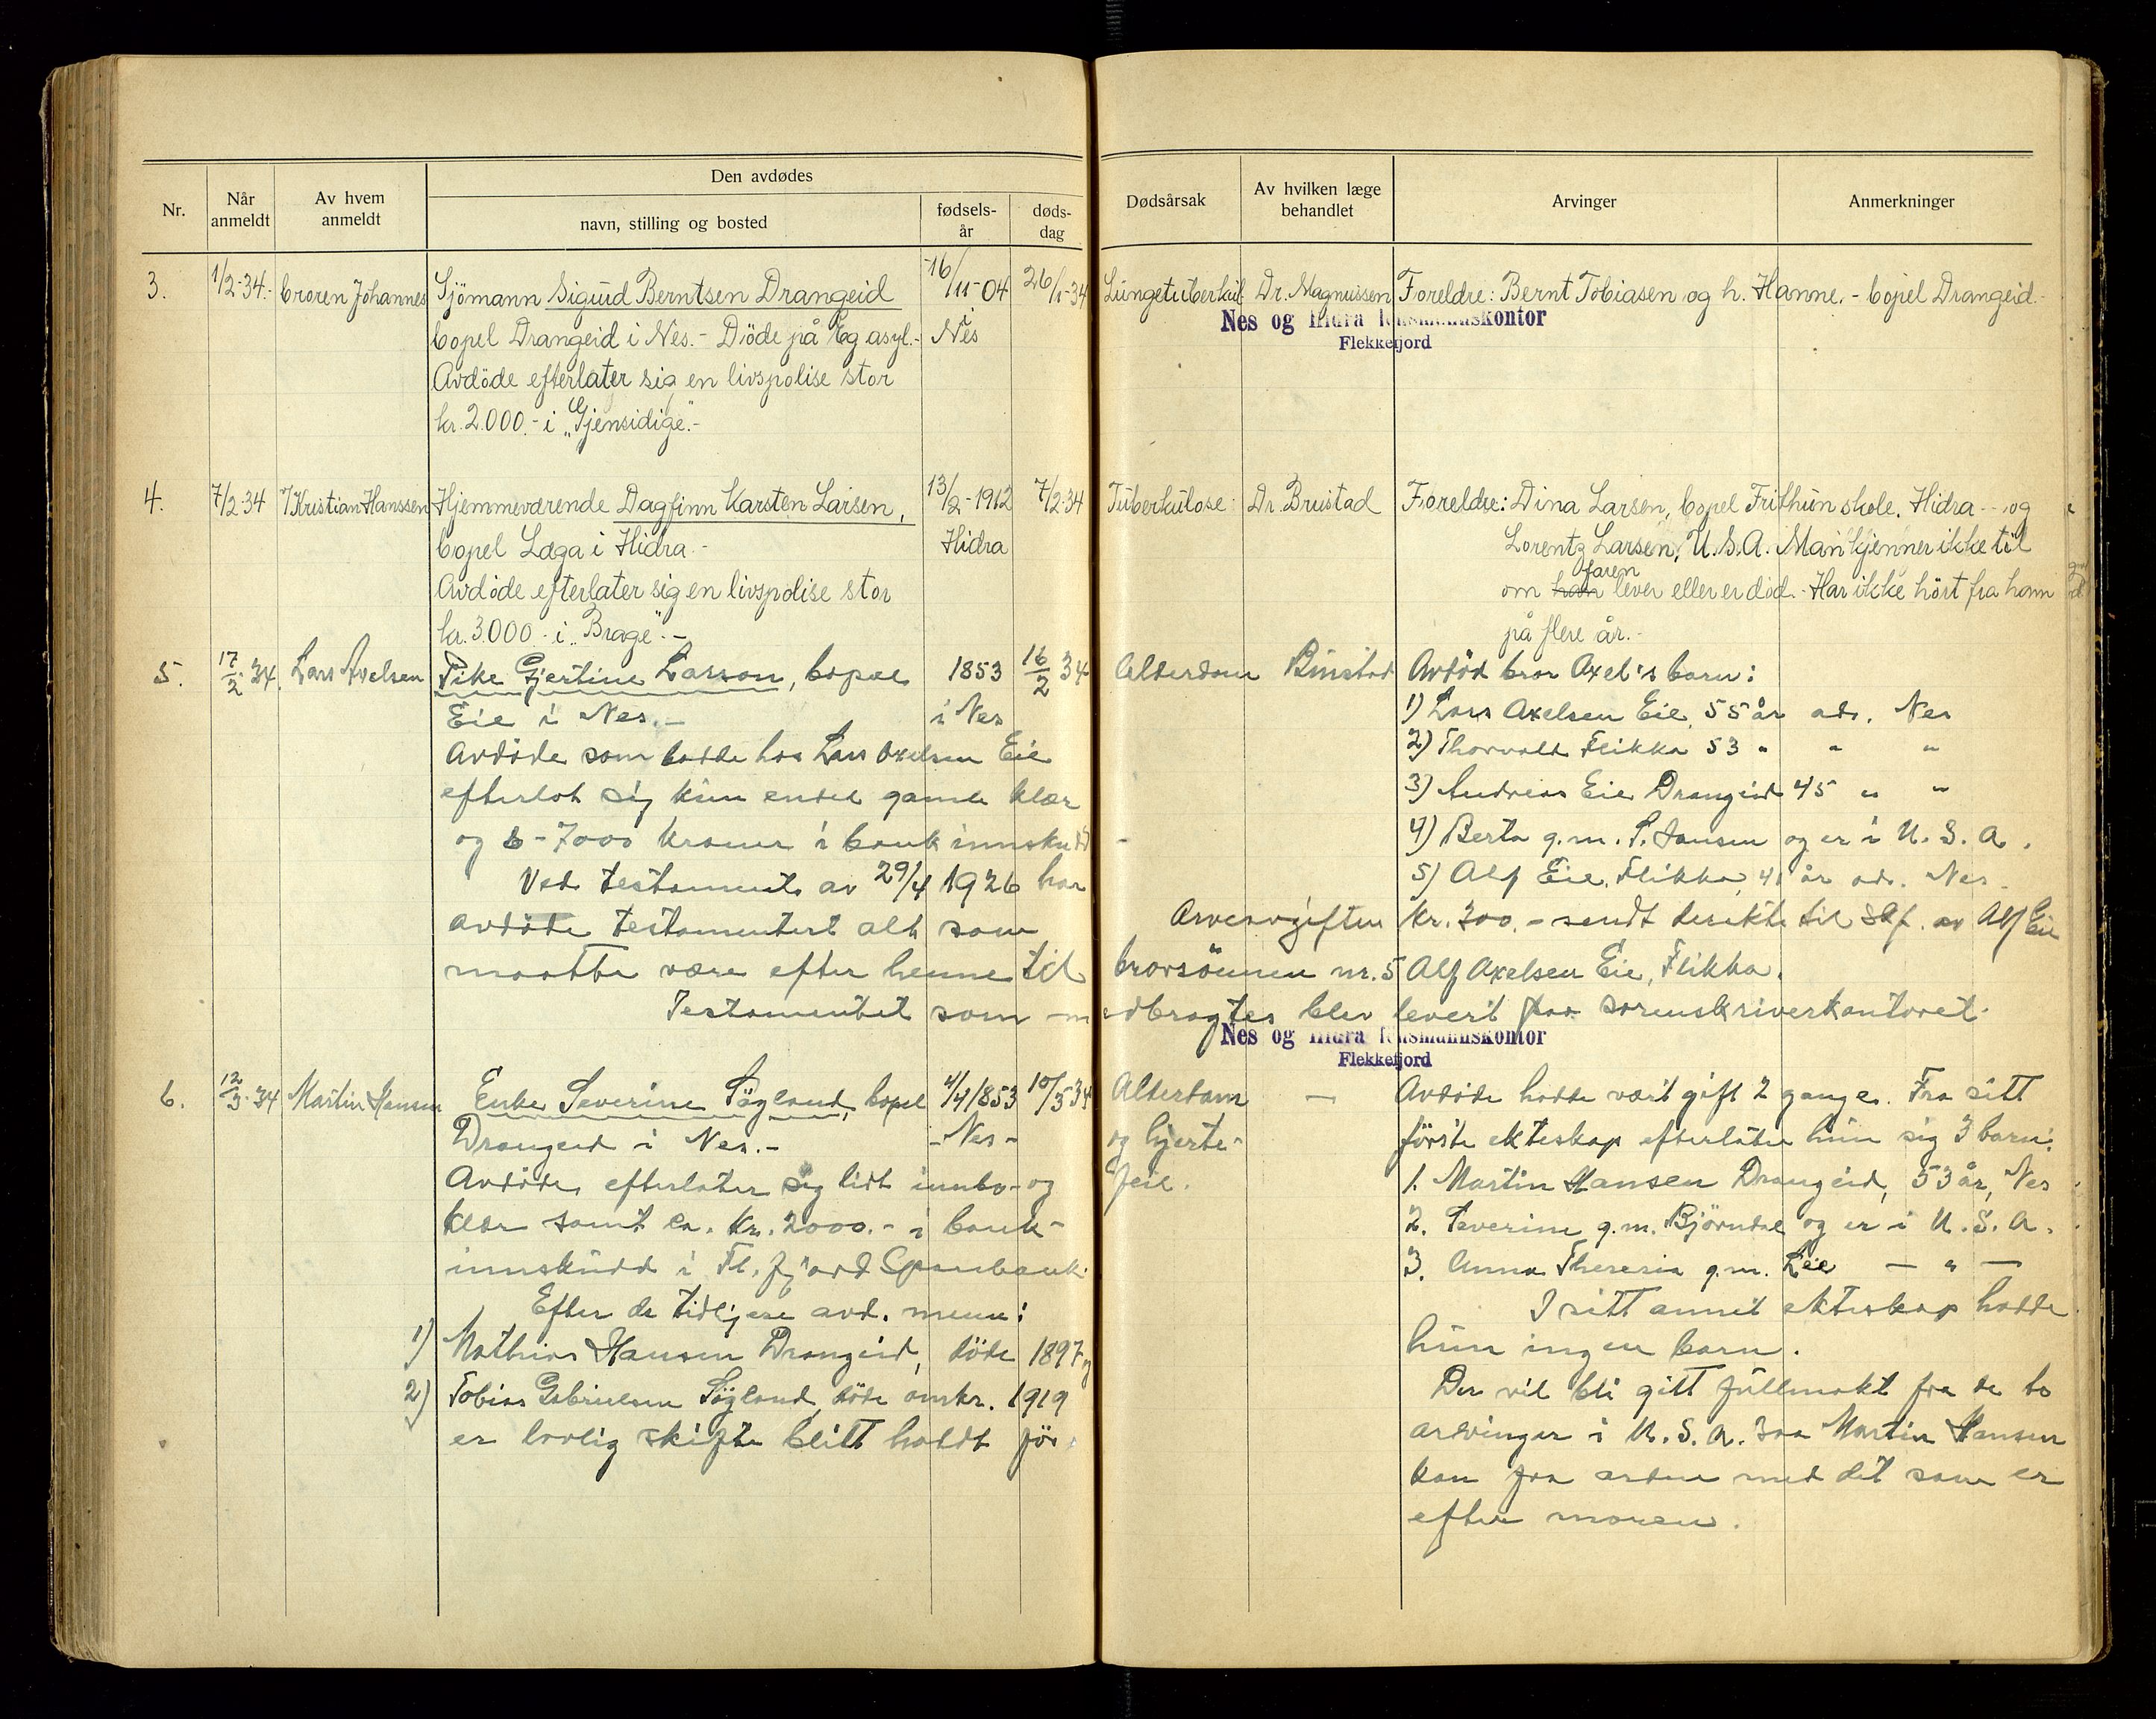 Nr.
Når anmeldt
Av hvem anmeldt
Den avdødes
navn, stilling og bosted
fødsels-år
døds-dag
Dødsårsak
Av hvilken læge behandlet
Arvinger
Anmerkninger
3. 1/2-34.- broren Johannes Sjömann Sigurd Berntsen Drangeid 16/11-04 26/1-34 Lungetuberkul. Dr. Magnussen Foreldre: Bernt Tobiasen og h. Hanne.- bopel Drangeid.-
bopel Drangeid i Nes.- Döde på Eg asyl.- i Nes
Nes og Hidra lensmannskontor
Flekkefjord
Avdöde efterlater sig en livspolise stor
kr. 2.000.- i „Gjensidige".-
4. 7/2-34 Kristian Hanssen Hjemmeværende Dagfinn Karsten Larsen, 13/2-1912 7/2-34 Tuberkulose. Dr. Brustad Foreldre: Dina Larsen, bopel skole. Hidra - og
bopel Læga i Hidra.- Hidra Lorentz Larsen, U.S.A. Man kjenner ikke til
Avdöde efterlater sig en livspolise stor om han faren lever eller er död.- Har ikke hört fra ham
kr. 3.000.- i „Brage".- på flere år.-
5. 17/2-34. Lars Axelsen Pike Gjertine Larson, bopæl 1853 16/2 34 Alderdom Avdöd bror Axel's barn:
Eie i Nes.- i Nes 1) Lars Axelsen Eie, 55 år adr. Nes
Avdöde som bodde hos Lars Axelsen Eie 2) Thorvald Flikka 53 " " "
efterlot sig kun endel gamle klær 3) Andreas Eie Drangeid 45 " "
og 6-7000 kroner i bank innskudd 4) Berta g.m. Jansen og er i U.S.A.
Ved testament av 29/4 1926 har 5) Alf Eie, Flikka, 41 år adr. Nes.
avdöde testamentert alt som Arveavgiften kr. 300.- sendt direkte til Skf. av Alf Eie
maatte være efter henne til brorsönnen nr. 5 Alf Axelsen Eie, Flikka.
Testamentet som medbragtes blev levert paa sorenskriverkontoret.
Nes og Hidra lensmannskontor
Flekkefjord
6. 12/3-34 Martin Hansen Enke Severine Sögland, bopel 4/4 1853 10/3 34 Alderdom — Avdöde hadde vært gift 2 ganger. Fra sitt
Drangeid i Nes.- - Nes - og hjerte- förste ekteskap efterlater hun sig 3 barn:
Avdöde efterlater sig lidt innbo- og feil. 1. Martin Hansen Drangeid, 53 år, Nes
klær samt ca. kr. 2000.- i bank- 2. Severine g.m. Björndal og er i U.S.A.
innskudd i Fl.fjord Sparebank. 3. Anna Theresia g.m. Lie — " —
Efter de tidligere avd. menn: I sitt annet ekteskap hadde
1) Mathias Hansen Drangeid, döde 1897 og hun ingen barn.
2) Tobias Gabrielsen Sögland, döde omkr. 1919 Der vil bli gitt fullmakt fra de to
er lovlig skifte blitt holdt för. arvinger i U.S.A. saa Martin Hansen
kan faa ordne med det som er
efter moren.